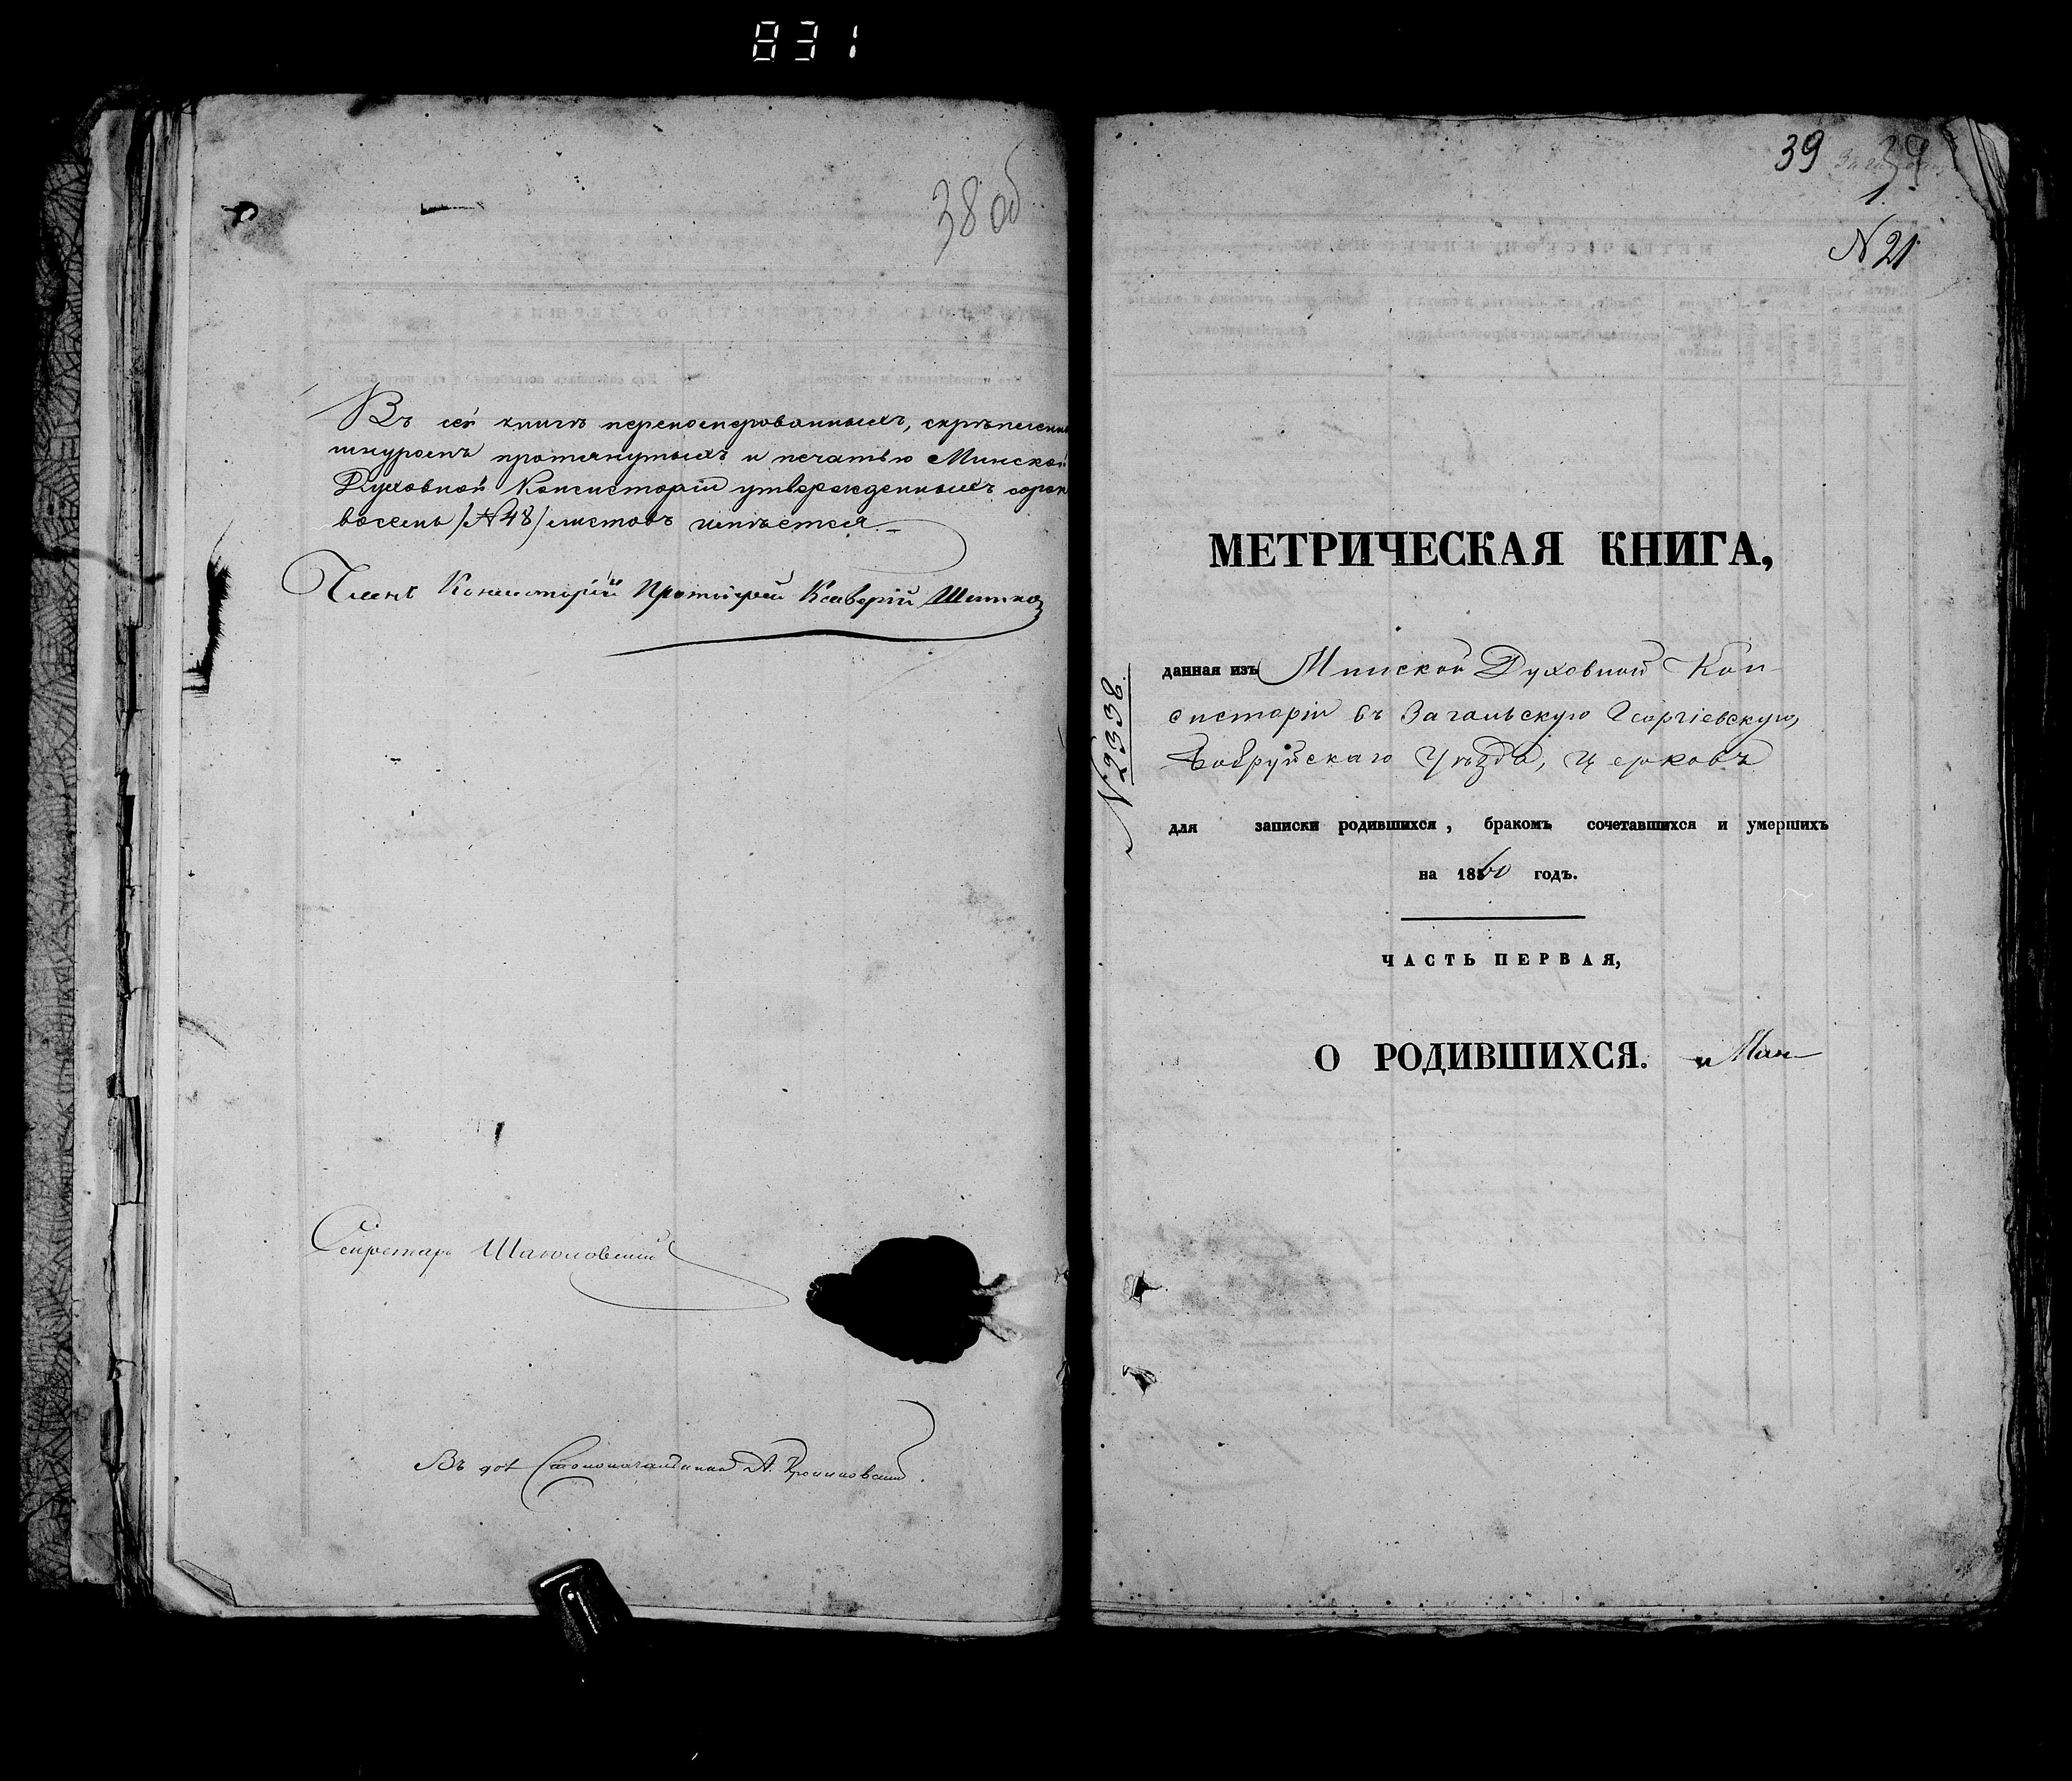 831
38 об
Въ сей книгѣ переномерованныхъ, скрѣпленн
шнуромъ протянутыхъ и печатью Минской
Духовной Консисторіи утвержденныхъ сорок
восемь /№ 48/ листовъ имѣется.
Членъ Консисторіи Протоіерей Ксаверій
Секретарь
Въ дол. Столоначальника А.
39 39
1.
N 21
МЕТРИЧЕСКАЯ КНИГА,
данная изъ Минской Духовной Кон-
систоріи въ Загальскую Георгіевскую,
Бобруйскаго Уѣзда, церковь
N 2338.
для записки родившихся, бракомъ сочетавшихся и умершихъ
на 1860 годъ.
ЧАСТЬ ПЕРВАЯ,
О РОДИВШИХСЯ.